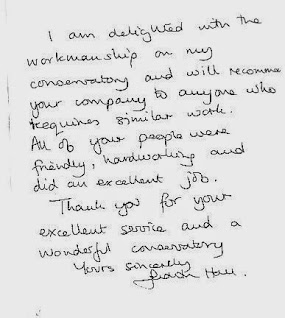 I am delighted with the
workmanship on my
conservatory and will recomme
your company to anyone who
requires similar work.
All of your people were
friendly, hardworking and
did an excellent job.
Thank you for your
excellent service and a
wonderful conservatory
Yours sincerely
Hall.